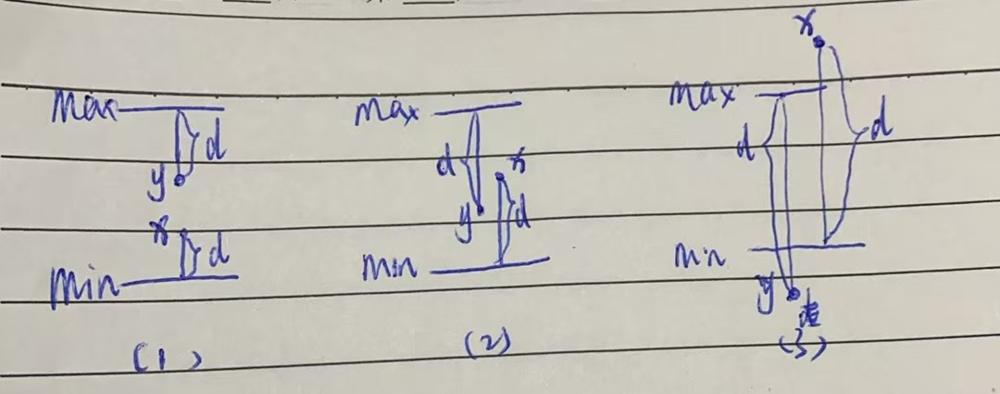 max d y x d min (1)
max d x y d min (2)
x max d d min y (3)